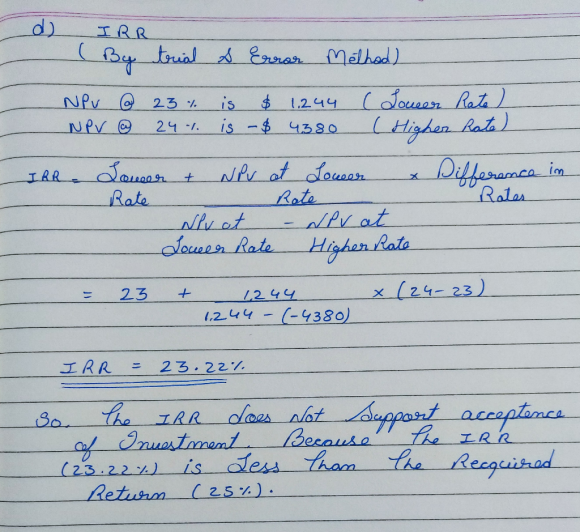 d) IRR
( By trial & Error Method)
NPV @ 23 % is $ 1244 ( Lower Rate )
NPV @ 24 % is -$ 4380 ( Higher Rate )
IRR = Lower + NPV at Lower × Difference in
Rate Rate Rates
NPV at - NPV at
Lower Rate Higher Rate
= 23 + 1244 × (24-23)
1244 - (-4380)
IRR = 23.22%
So. The IRR does Not Support acceptence
of Investment. Because The IRR
(23.22%) is Less Than The Recquired
Return (25%).